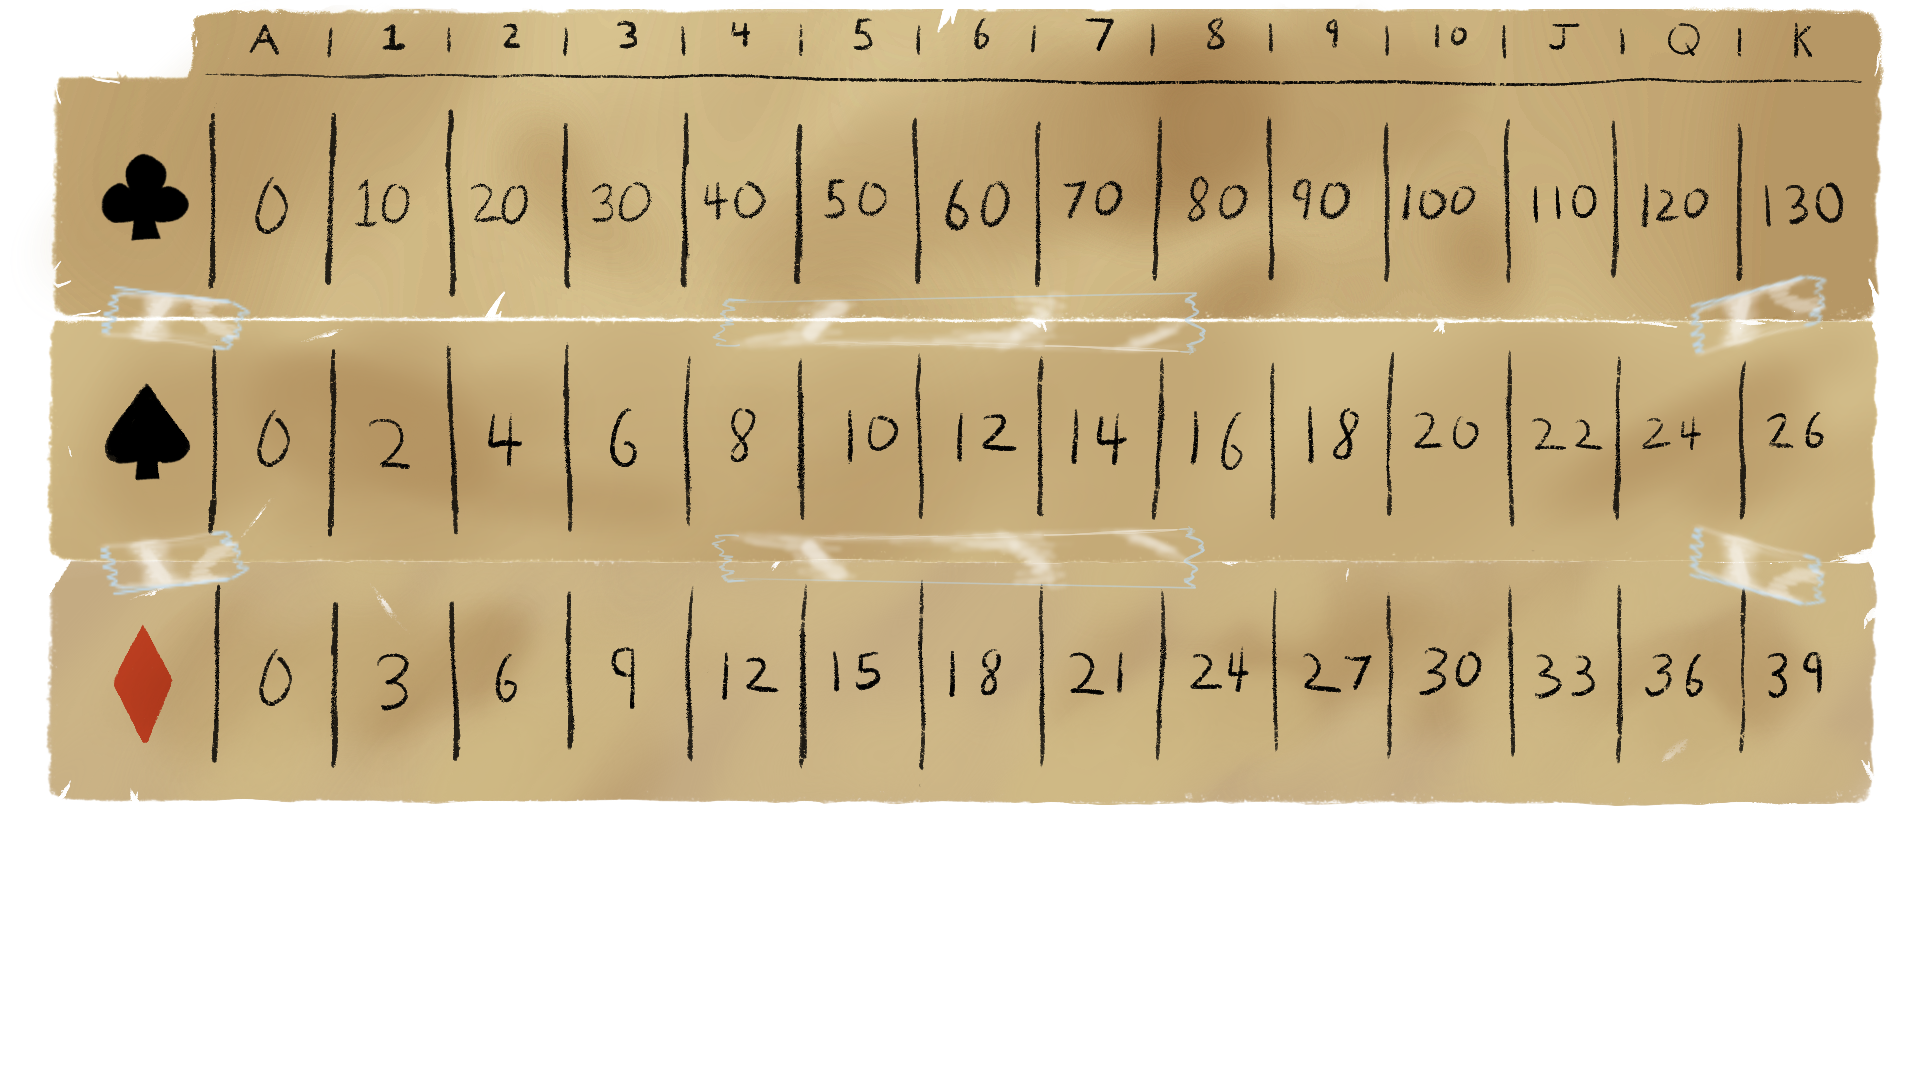 A | 1 | 2 | 3 | 4 | 5 | 6 | 7 | 8 | 9 | 10 | J | Q | K
♣ | 0 | 10 | 20 | 30 | 40 | 50 | 60 | 70 | 80 | 90 | 100 | 110 | 120 | 130
♠ | 0 | 2 | 4 | 6 | 8 | 10 | 12 | 14 | 16 | 18 | 20 | 22 | 24 | 26
♦ | 0 | 3 | 6 | 9 | 12 | 15 | 18 | 21 | 24 | 27 | 30 | 33 | 36 | 39